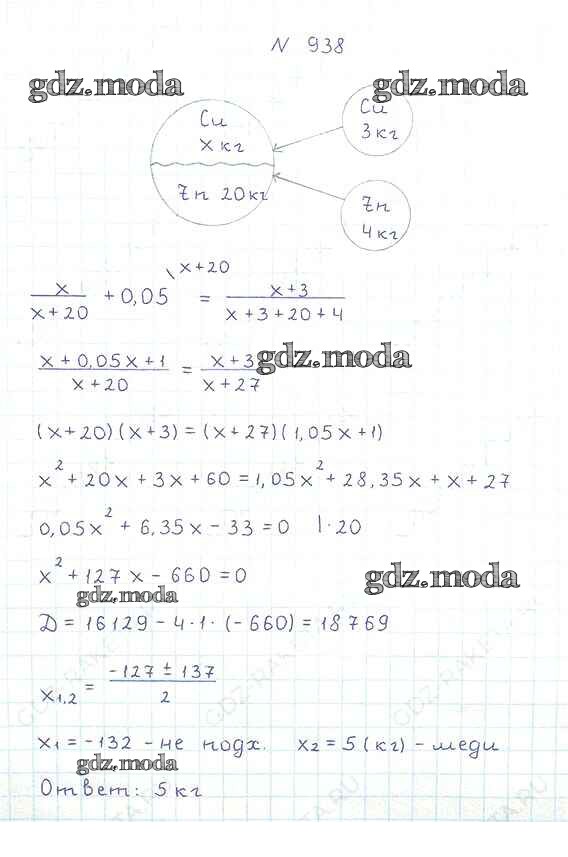 N 938
gdz.moda gdz.moda
Cu
x кг
Zn 20 кг
Cu
3 кг
Zn
4 кг
x/(x+20) + 0,05 \x+20 = (x+3)/(x+3+20+4)
(x+0,05x+1)/(x+20) = (x+3)/(x+27) gdz.moda
(x+20)(x+3)=(x+27)(1,05x+1)
x²+20x+3x+60=1,05x²+28,35x+x+27
0,05x²+6,35x-33=0 |·20
x²+127x-660=0
gdz.moda gdz.moda
D=16129-4·1·(-660)=18769
x1,2 = (-127±137)/2
x1=-132 - не подх. x2=5(кг)-меди
gdz.moda
Ответ: 5 кг